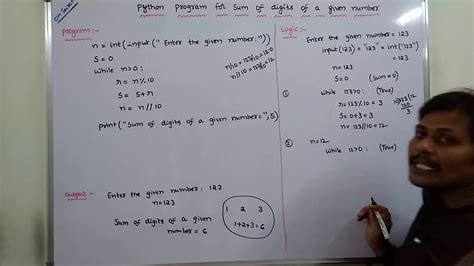 Python program for Sum of digits of a given number
Program:-
n = int(input("Enter the given number:"))
S=0
while n>0:
r = n%10
S = S+r
n = n//10
print("Sum of digits of a given number=",S)
n/10=123/10=12.0
n//10=123//10=12
Output:-
Enter the given number: 123
n=123
Sum of digits of a given
number = 6
1 2 3
1+2+3=6
Logic:-
Enter the given number = 123
input(123) = "123" = int("123")
= 123
S=0 (Sum=0)
① while 123>0: (True)
r = 123%10 = 3
S=0+3=3
n=123//10=12
10)123(12
120
3
② n=12
while 12>0: (True)